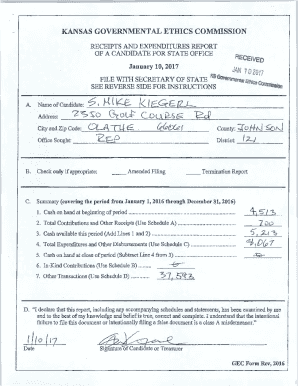 KANSAS GOVERNMENTAL ETHICS COMMISSION
RECEIPTS AND EXPENDITURES REPORT
OF A CANDIDATE FOR STATE OFFICE
January 10, 2017
RECEIVED
JAN 10 2017
KS Governmental Ethics Commission
FILE WITH SECRETARY OF STATE
SEE REVERSE SIDE FOR INSTRUCTIONS
A. Name of Candidate: S. MIKE KIEGERL
Address: 2350 GOLF COURSE Rd
City and Zip Code: OLATHE 66061 County: JOHNSON
Office Sought: REP District: 121
B. Check only if appropriate: Amended Filing Termination Report
C. Summary (covering the period from January 1, 2016 through December 31, 2016)
1. Cash on hand at beginning of period 4,513
2. Total Contributions and Other Receipts (Use Schedule A) 700
3. Cash available this period (Add Lines 1 and 2) 5,213
4. Total Expenditures and Other Disbursements (Use Schedule C) 4,067
5. Cash on hand at close of period (Subtract Line 4 from 3)
6. In-Kind Contributions (Use Schedule B)
7. Other Transactions (Use Schedule D) 37,593
D. "I declare that this report, including any accompanying schedules and statements, has been examined by me
and to the best of my knowledge and belief is true, correct and complete. I understand that the intentional
failure to file this document or intentionally filing a false document is a class A misdemeanor."
1/10/17
Date Signature of Candidate or Treasurer
GEC Form Rev, 2016